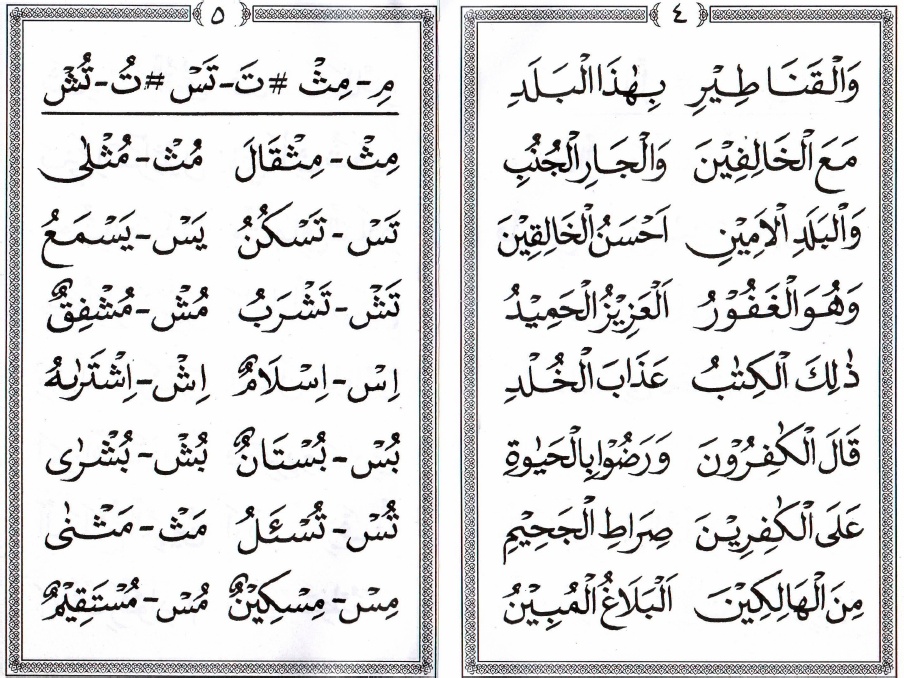 ٤
وَالْقَنَا طِيْرِ بِهٰذَا الْبَلَدِ
مَعَ الْخَالِفِيْنَ وَالْجَارِ الْجُنُبِ
وَالْبَلَدِ الْاَمِيْنِ اَحْسَنُ الْخَالِقِيْنَ
وَهُوَ الْغَفُوْرُ اَلْعَزِيْزُ الْحَمِيْدُ
ذٰلِكَ الْكِتٰبُ عَذَابَ الْخُلْدِ
قَالَ الْكٰفِرُوْنَ وَرَضُوْا بِالْحَيٰوةِ
عَلَى الْكٰفِرِيْنَ صِرَاطِ الْجَحِيْمِ
مِنَ الْهَالِكِيْنَ اَلْبَلَاغُ الْمُبِيْنُ
٥
مِ-مِثْ #تَ-تَسْ #تُ-تُشْ
مِثْ-مِثْقَالَ مُثْ-مُثْلٰى
تَسْ-تَسْكُنُ يَسْ-يَسْمَعُ
تَشْ-تَشْرَبُ مُشْ-مُشْفِقٌ
اِسْ-اِسْلَامٌ اِشْ-اِشْتَرٰىهُ
بُسْ-بُسْتَانٌ بُشْ-بُشْرٰى
تُسْ-تُسْئَلُ مَثْ-مَثْنٰى
مِسْ-مِسْكِيْنٌ مُسْ-مُسْتَقِيْمٌ